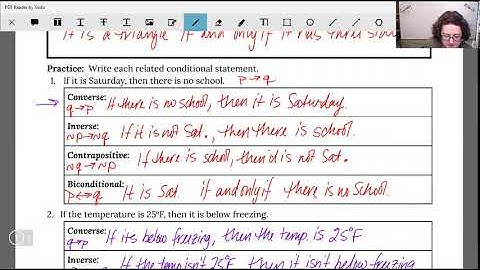 PDF Reader by Xodo
It is a triangle if and only if it has three sides
Practice: Write each related conditional statement.
1. If it is Saturday, then there is no school. p→q
Converse: If there is no school, then it is Saturday.
q→p
Inverse: If it is not Sat., then there is school.
~p→~q
Contrapositive: If there is school, then it is not Sat.
~q→~p
Biconditional: It is Sat. if and only if there is no school.
p↔q
2. If the temperature is 25°F, then it is below freezing.
Converse: If its below freezing, then the temp. is 25°F
q→p
Inverse: If the temp isn't 25°F then it isn't below freezing